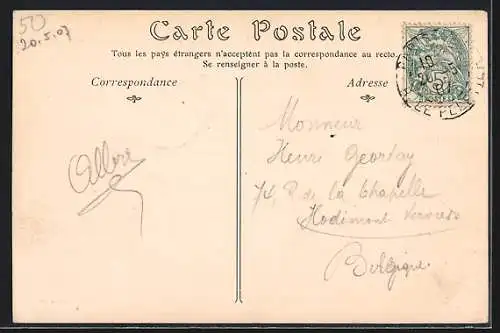 50
20.5.07
Carte Postale
Tous les pays étrangers n'acceptent pas la correspondance au recto.
Se renseigner à la poste.
Correspondance
Adresse
Monsieur
Henri
74, R. de la Chapelle
Hodimont Verviers
Belgique